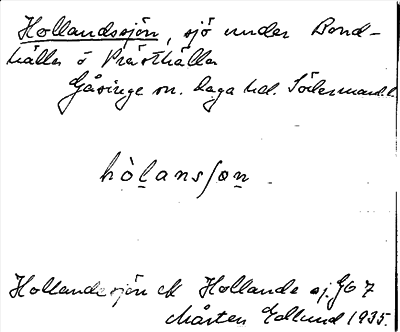 Hollandssjön, sjö under Bond-
källa o Prästkälla
Gåsinge sn. Daga hd. Södermanl. l.
hòlansʃon
Hollandesjön el Hollande sj. GO 7
Mårten Edlund 1935.